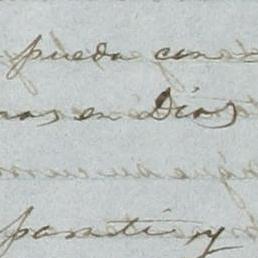 pueda con
mas en Dios
para ti, y